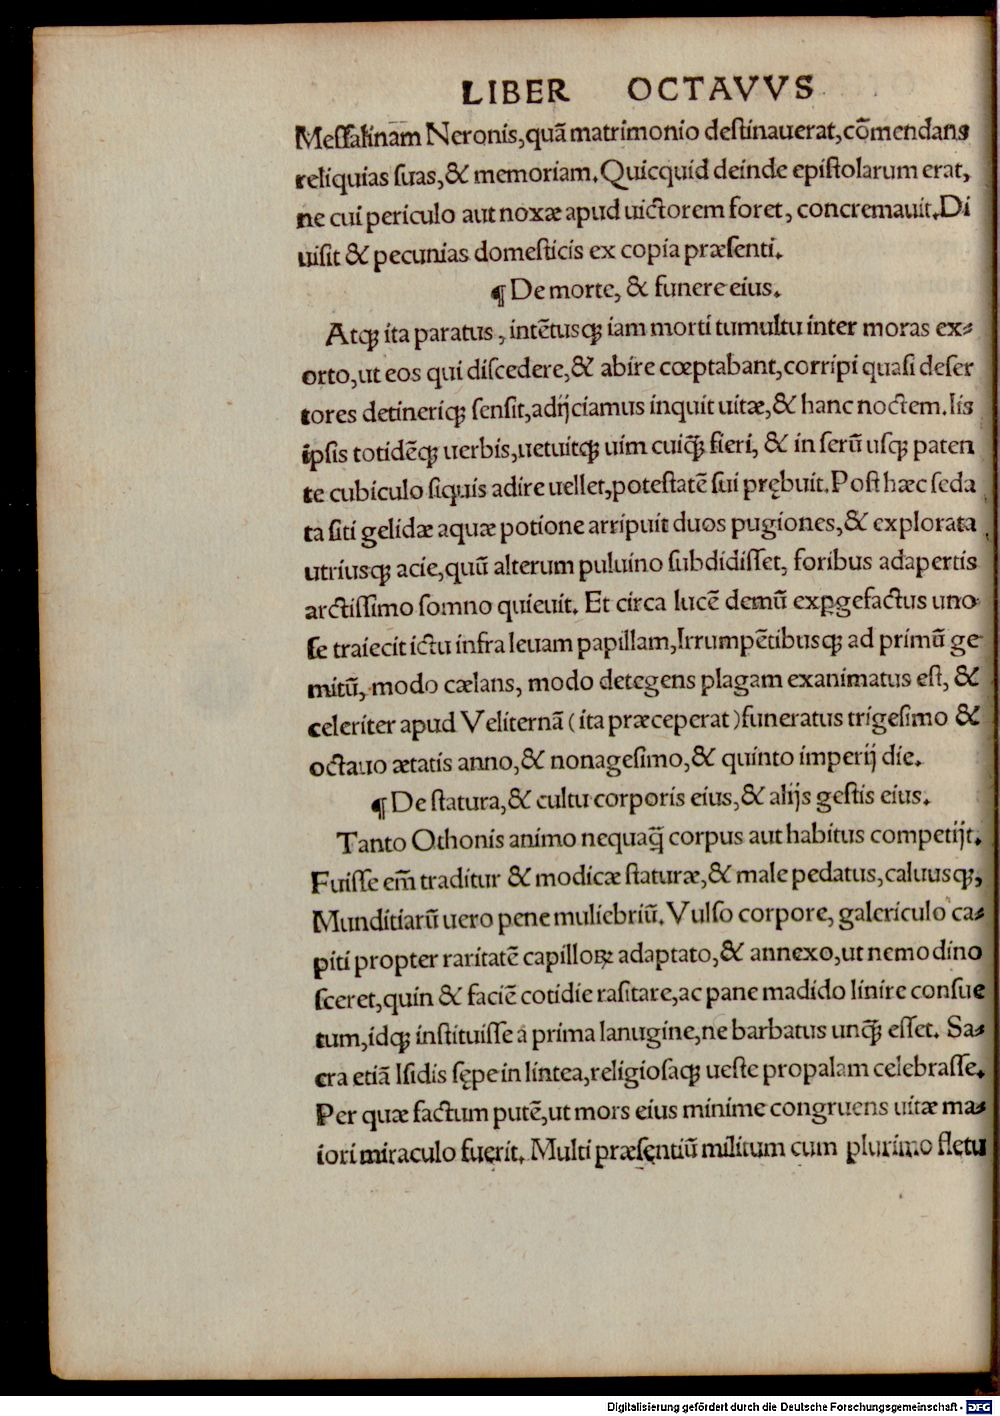 LIBER OCTAVVS
Messalinam Neronis,quã matrimonio destinauerat,cõmendans
reliquias suas,& memoriam. Quicquid deinde epistolarum erat,
ne cui periculo aut noxæ apud uictorem foret, concremauit. Di
uisit & pecunias domesticis ex copia præsenti.
¶ De morte, & funere eius.
Atq; ita paratus, intẽtusq; iam morti tumultu inter moras ex-
orto,ut eos qui discedere,& abire cœptabant,corripi quasi deser
tores detineriq; sensit,adijciamus inquit uitæ,& hanc noctem. Iis
ipsis totidẽq; uerbis,uetuitq; uim cuiq̃; fieri, & in serũ usq; paten
te cubiculo siquis adire uellet,potestatẽ sui prębuit. Post hæc seda
ta siti gelidæ aquæ potione arripuit duos pugiones,& explorata
utriusq; acie,quũ alterum puluino subdidisset, foribus adapertis
arctissimo somno quieuit. Et circa lucẽ demũ exꝑgefactus uno
se traiecit ictu infra leuam papillam,Irrumpẽtibusq; ad primũ ge
mitũ, modo cælans, modo detegens plagam exanimatus est, &
celeriter apud Veliternã (ita præceperat) funeratus trigesimo &
octauo ætatis anno,& nonagesimo,& quinto imperij die.
¶ De statura,& cultu corporis eius,& alijs gestis eius.
Tanto Othonis animo nequaq̃ corpus aut habitus competijt.
Fuisse em̃ traditur & modicæ staturæ,& male pedatus,caluusq;,
Munditiarũ uero pene muliebriũ. Vulso corpore, galericulo ca-
piti propter raritatẽ capilloꝝ adaptato,& annexo,ut nemo dino
sceret,quin & faciẽ cotidie rasitare,ac pane madido linire consue
tum,idq; instituisse a prima lanugine,ne barbatus unq̃; esset. Sa-
cra etiã Isidis sępe in lintea,religiosaq; ueste propalam celebrasse.
Per quæ factum putẽ,ut mors eius minime congruens uitæ ma-
iori miraculo fuerit. Multi præsentiũ militum cum plurimo fletu
Digitalisierung gefördert durch die Deutsche Forschungsgemeinschaft - DFG